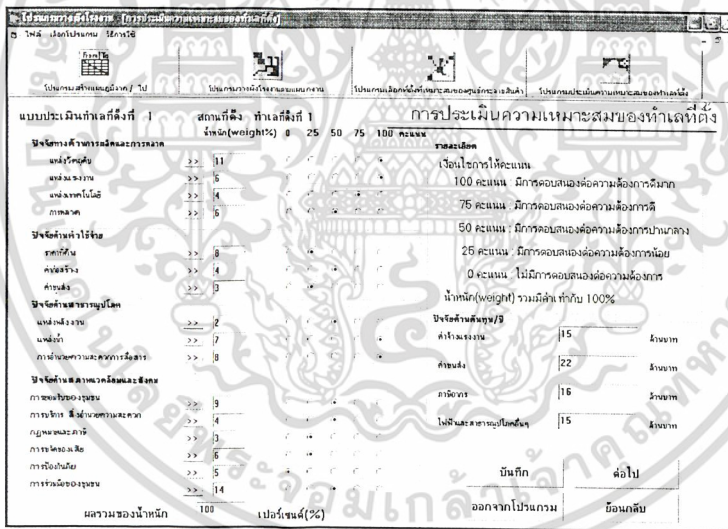 โปรแกรมวางผังโรงงาน - [การประเมินความเหมาะสมของทำเลที่ตั้ง]
ไฟล์ เลือกโปรแกรม วิธีการใช้
From To
โปรแกรมสร้างแผนภูมิจาก / ไป
โปรแกรมวางผังโรงงานตามแผนกงาน
โปรแกรมเลือกที่ตั้งที่เหมาะสมของศูนย์กระจายสินค้า
โปรแกรมประเมินความเหมาะสมของทำเลที่ตั้ง
แบบประเมินทำเลที่ตั้งที่ 1 สถานที่ตั้ง ทำเลที่ตั้ง 1
การประเมินความเหมาะสมของทำเลที่ตั้ง
น้ำหนัก(weight%) 0 25 50 75 100 คะแนน
ปัจจัยทางด้านการผลิตและการตลาด
แหล่งวัตถุดิบ >> 11
แหล่งแรงงาน >> 6
แหล่งเทคโนโลยี >> 4
การตลาด >> 6
ปัจจัยด้านค่าใช้จ่าย
ราคาที่ดิน >> 8
ค่าก่อสร้าง >> 4
ค่าขนส่ง >> 3
ปัจจัยด้านสาธารณูปโภค
แหล่งพลังงาน >> 2
แหล่งน้ำ >> 7
การอำนวยความสะดวกการสื่อสาร >> 8
ปัจจัยด้านสภาพแวดล้อมและสังคม
การยอมรับของชุมชน >> 9
การบริการ สิ่งอำนวยความสะดวก >> 4
กฎหมายและภาษี >> 3
การขจัดของเสีย >> 6
การป้องกันภัย >> 5
การร่วมมือของชุมชน >> 14
ผลรวมของน้ำหนัก 100 เปอร์เซนต์(%)
รายละเอียด
เงื่อนไขการให้คะแนน
100 คะแนน : มีการตอบสนองต่อความต้องการดีมาก
75 คะแนน : มีการตอบสนองต่อความต้องการดี
50 คะแนน : มีการตอบสนองต่อความต้องการปานกลาง
25 คะแนน : มีการตอบสนองต่อความต้องการน้อย
0 คะแนน : ไม่มีการตอบสนองต่อความต้องการ
น้ำหนัก(weight) รวมมีค่าเท่ากับ 100%
ปัจจัยด้านต้นทุน/ปี
ค่าจ้างแรงงาน 15 ล้านบาท
ค่าขนส่ง 22 ล้านบาท
ภาษีอากร 16 ล้านบาท
ไฟฟ้าและสาธารณูปโภคอื่นๆ 15 ล้านบาท
บันทึก ต่อไป
ออกจากโปรแกรม ย้อนกลับ